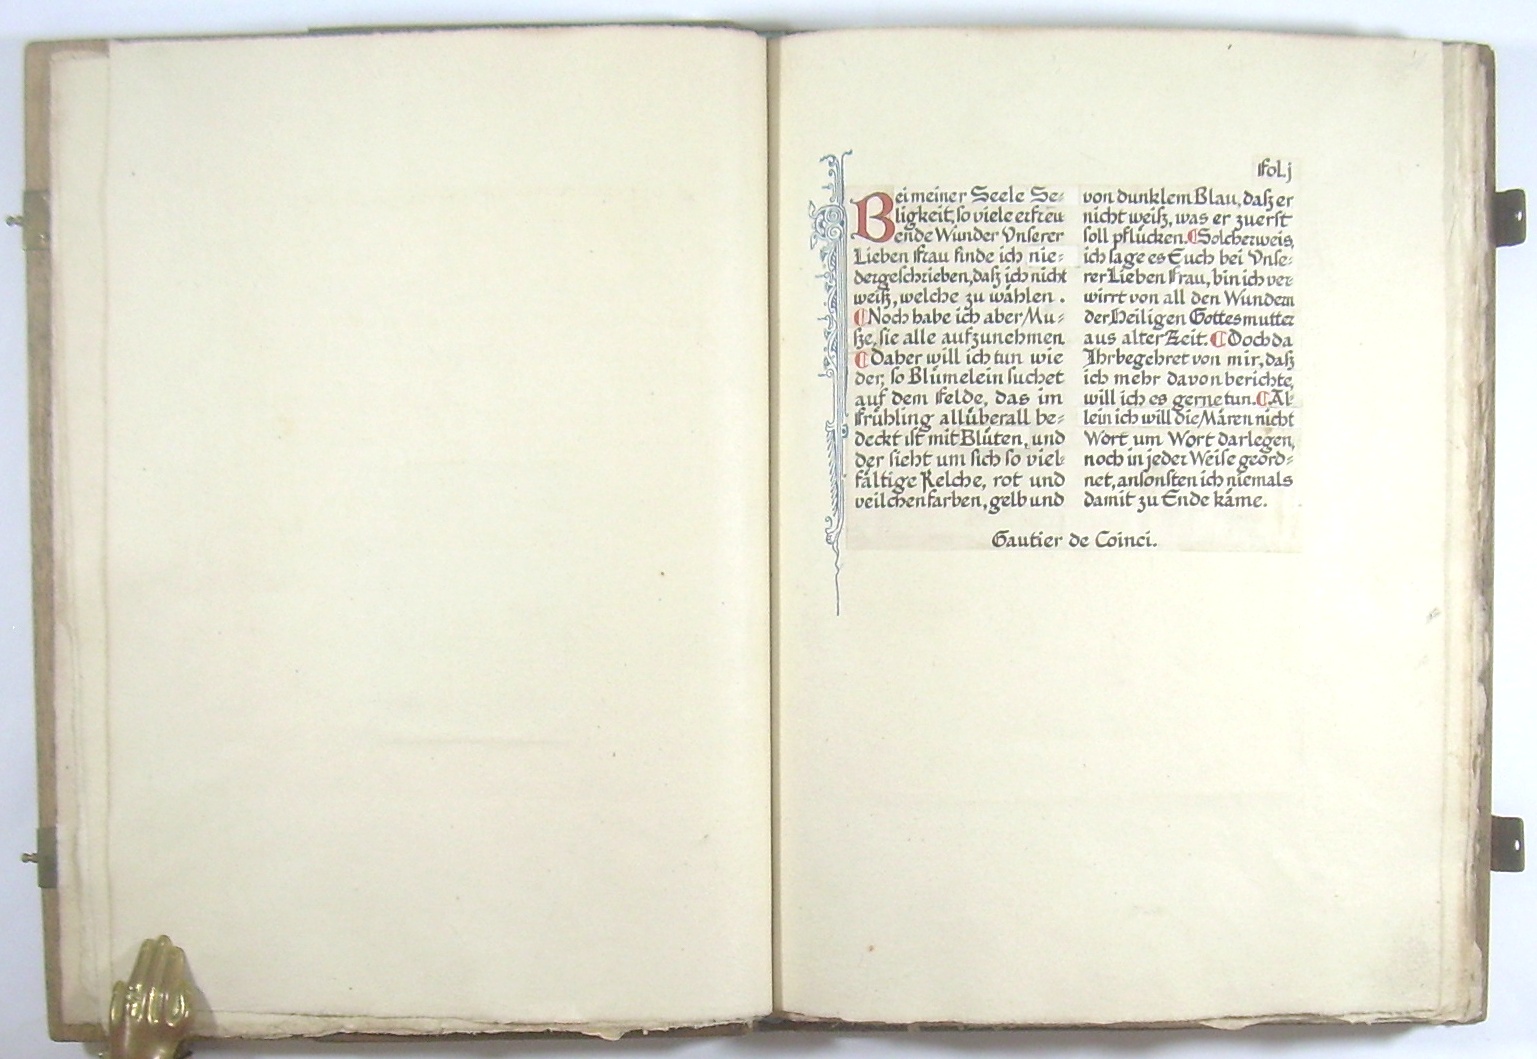 Fol.j
Bei meiner Seele Se=
ligkeit, so viele erfreu
ende Wunder Vnserer
Lieben Frau finde ich nie=
dergeschrieben, daß ich nicht
weiß, welche zu wählen.
Noch habe ich aber Mu=
ße, sie alle aufzunehmen
Daher will ich tun wie
der, so Blümelein suchet
auf dem Felde, das im
Frühling allüberall be=
deckt ist mit Blüten, und
der sieht um sich so viel=
fältige Kelche, rot und
veilchenfarben, gelb und
von dunklem Blau, daß er
nicht weiß, was er zuerst
soll pflücken. Solcherweis,
ich sage es Euch bei Vnse=
rer Lieben Frau, bin ich ver
wirrt von all den Wundern
der Heiligen Gottesmutter
aus alter Zeit. Doch da
Ihr begehret von mir, daß
ich mehr davon berichte,
will ich es gerne tun. Al=
lein ich will die Mären nicht
Wort um Wort darlegen,
noch in jeder Weise geord=
net, ansonsten ich niemals
damit zu Ende käme.
Gautier de Coinci.